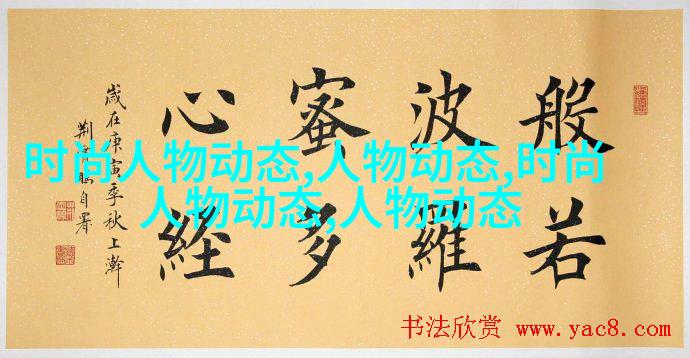 般若
波羅
蜜多
心經
歲在庚寅季秋上澣
荆霄鹏自署
时尚人物动态,人物动态,时尚
人物动态,人物动态
书法欣赏 www.yac8.com